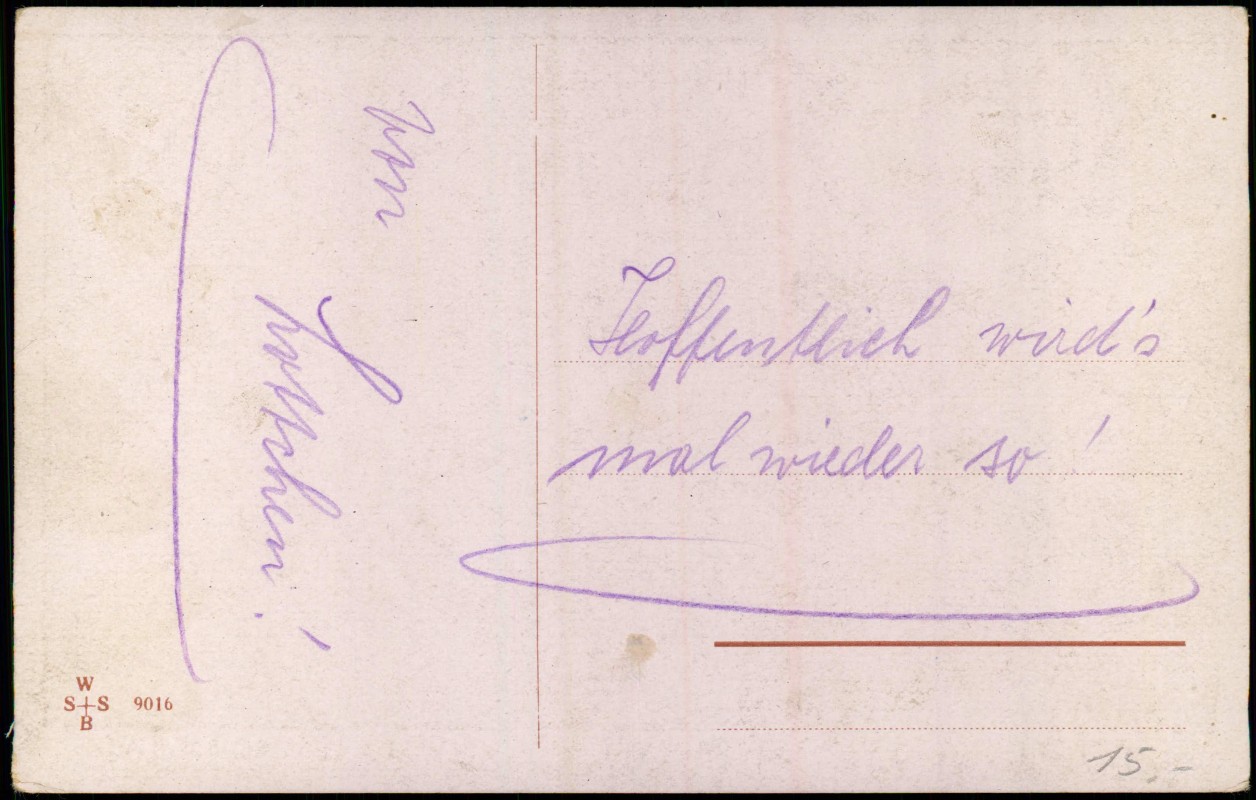 von
Lottchen!
Hoffentlich wird's
mal wieder so!
W
S S 9016
B
15.-